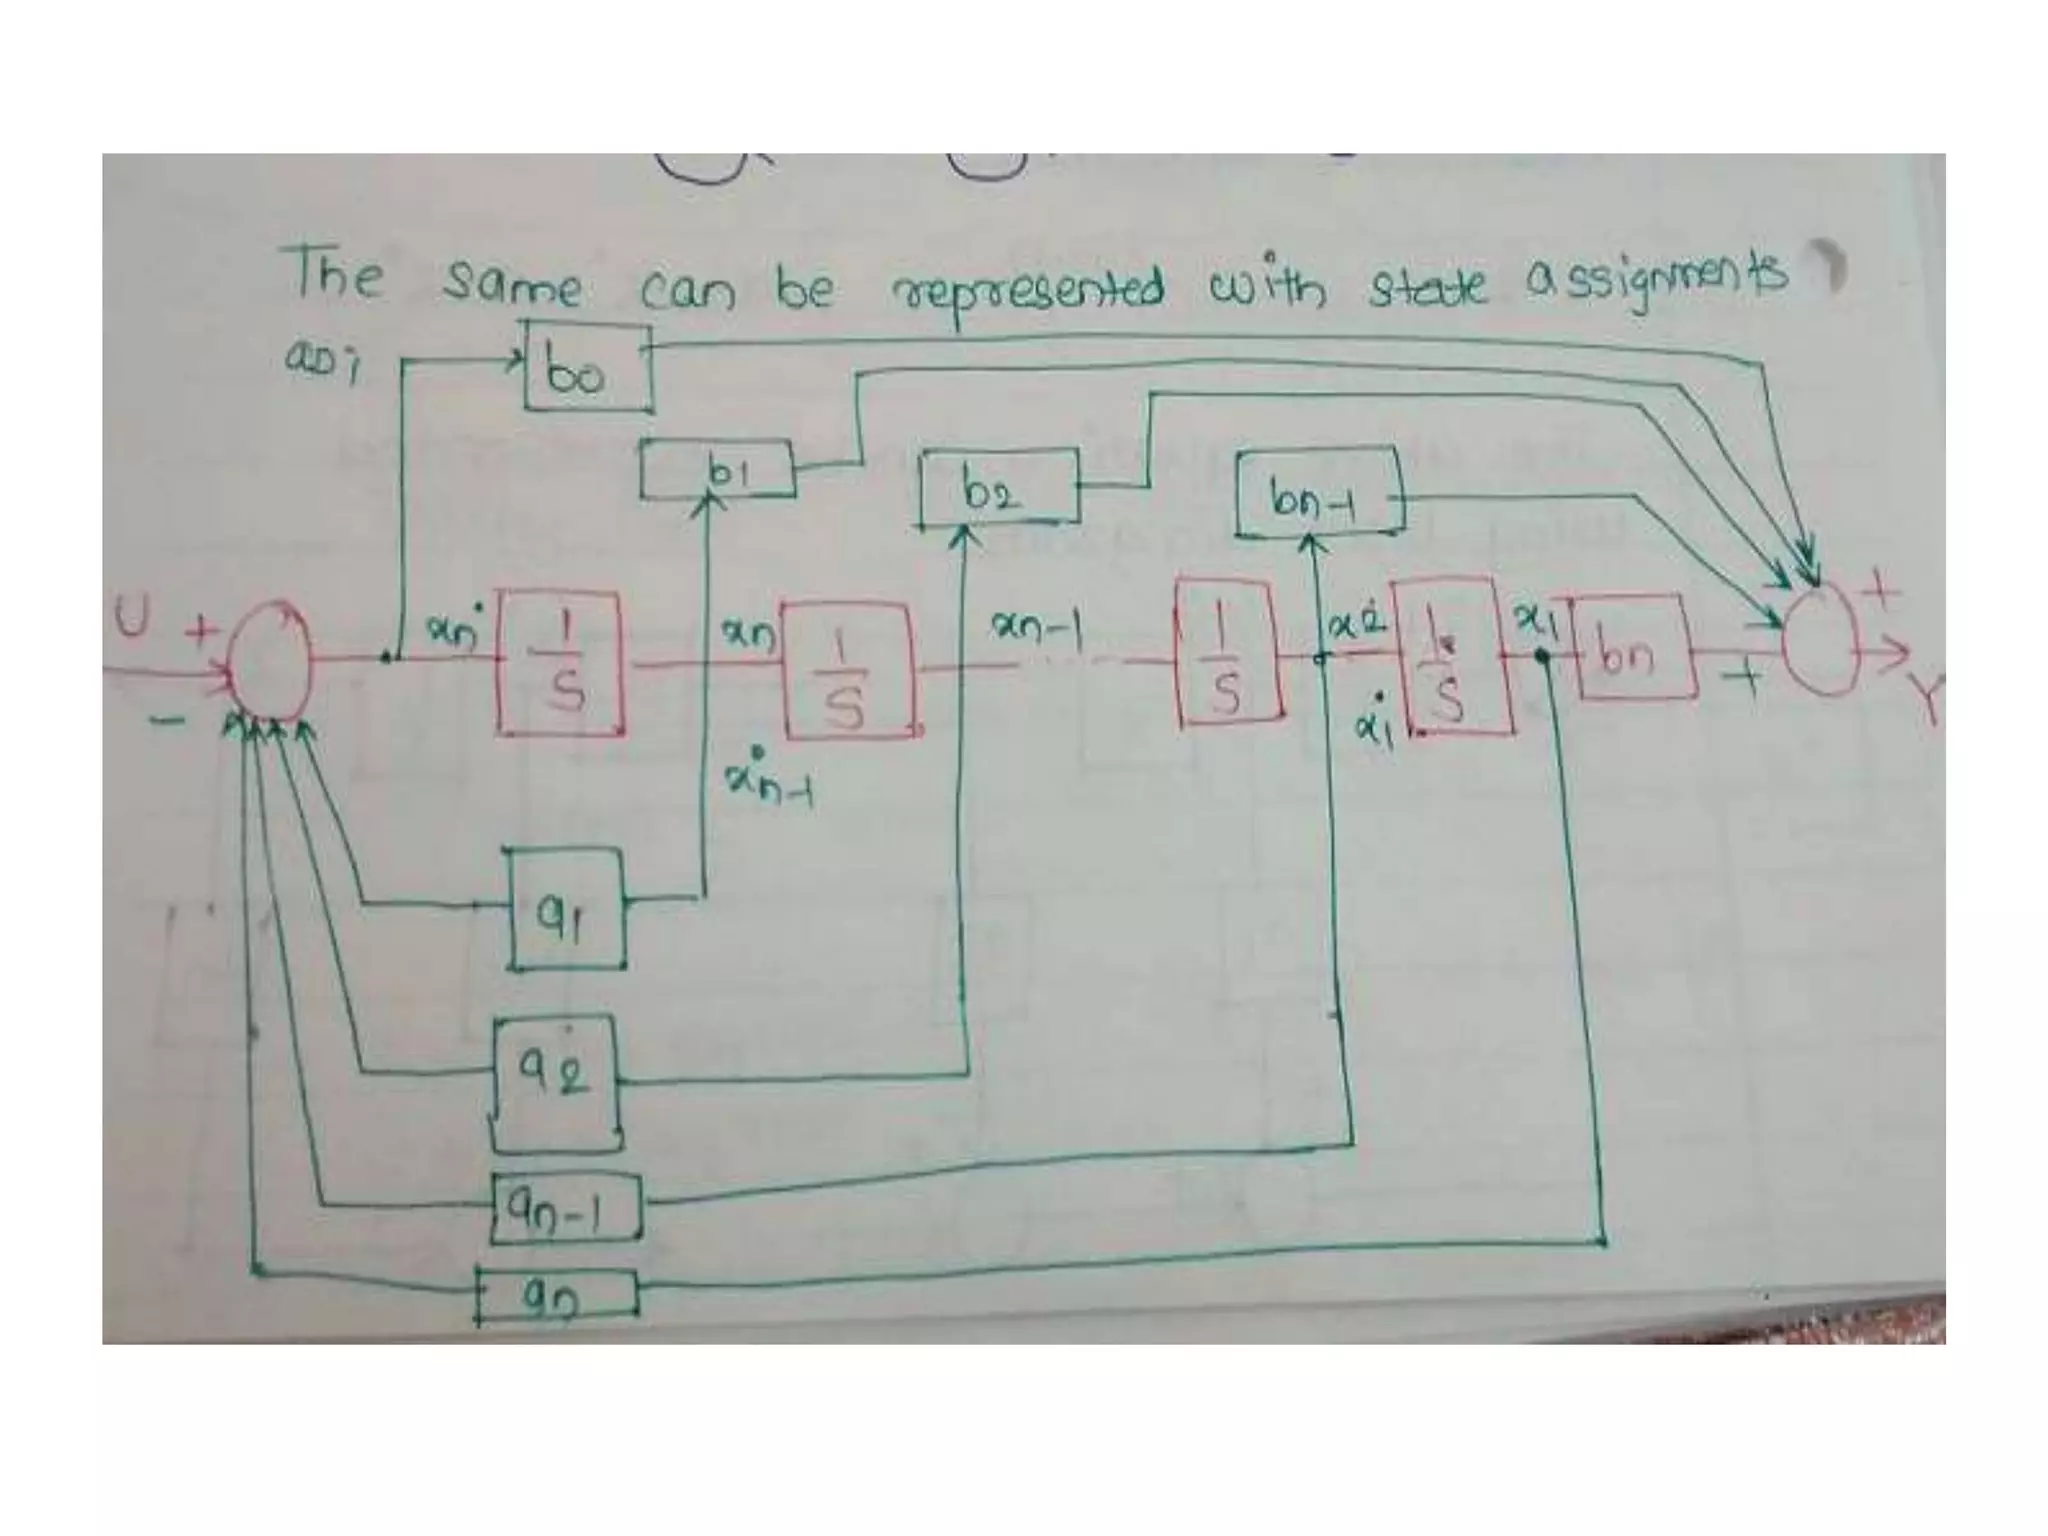 The same can be represented with state assignments
as;
b0
b1
b2
bn-1
U + ẋn 1/S xn 1/S xn-1 1/S x2 1/S x1 bn + Y
- ẋn-1 ẋ1 +
a1
a2
an-1
an